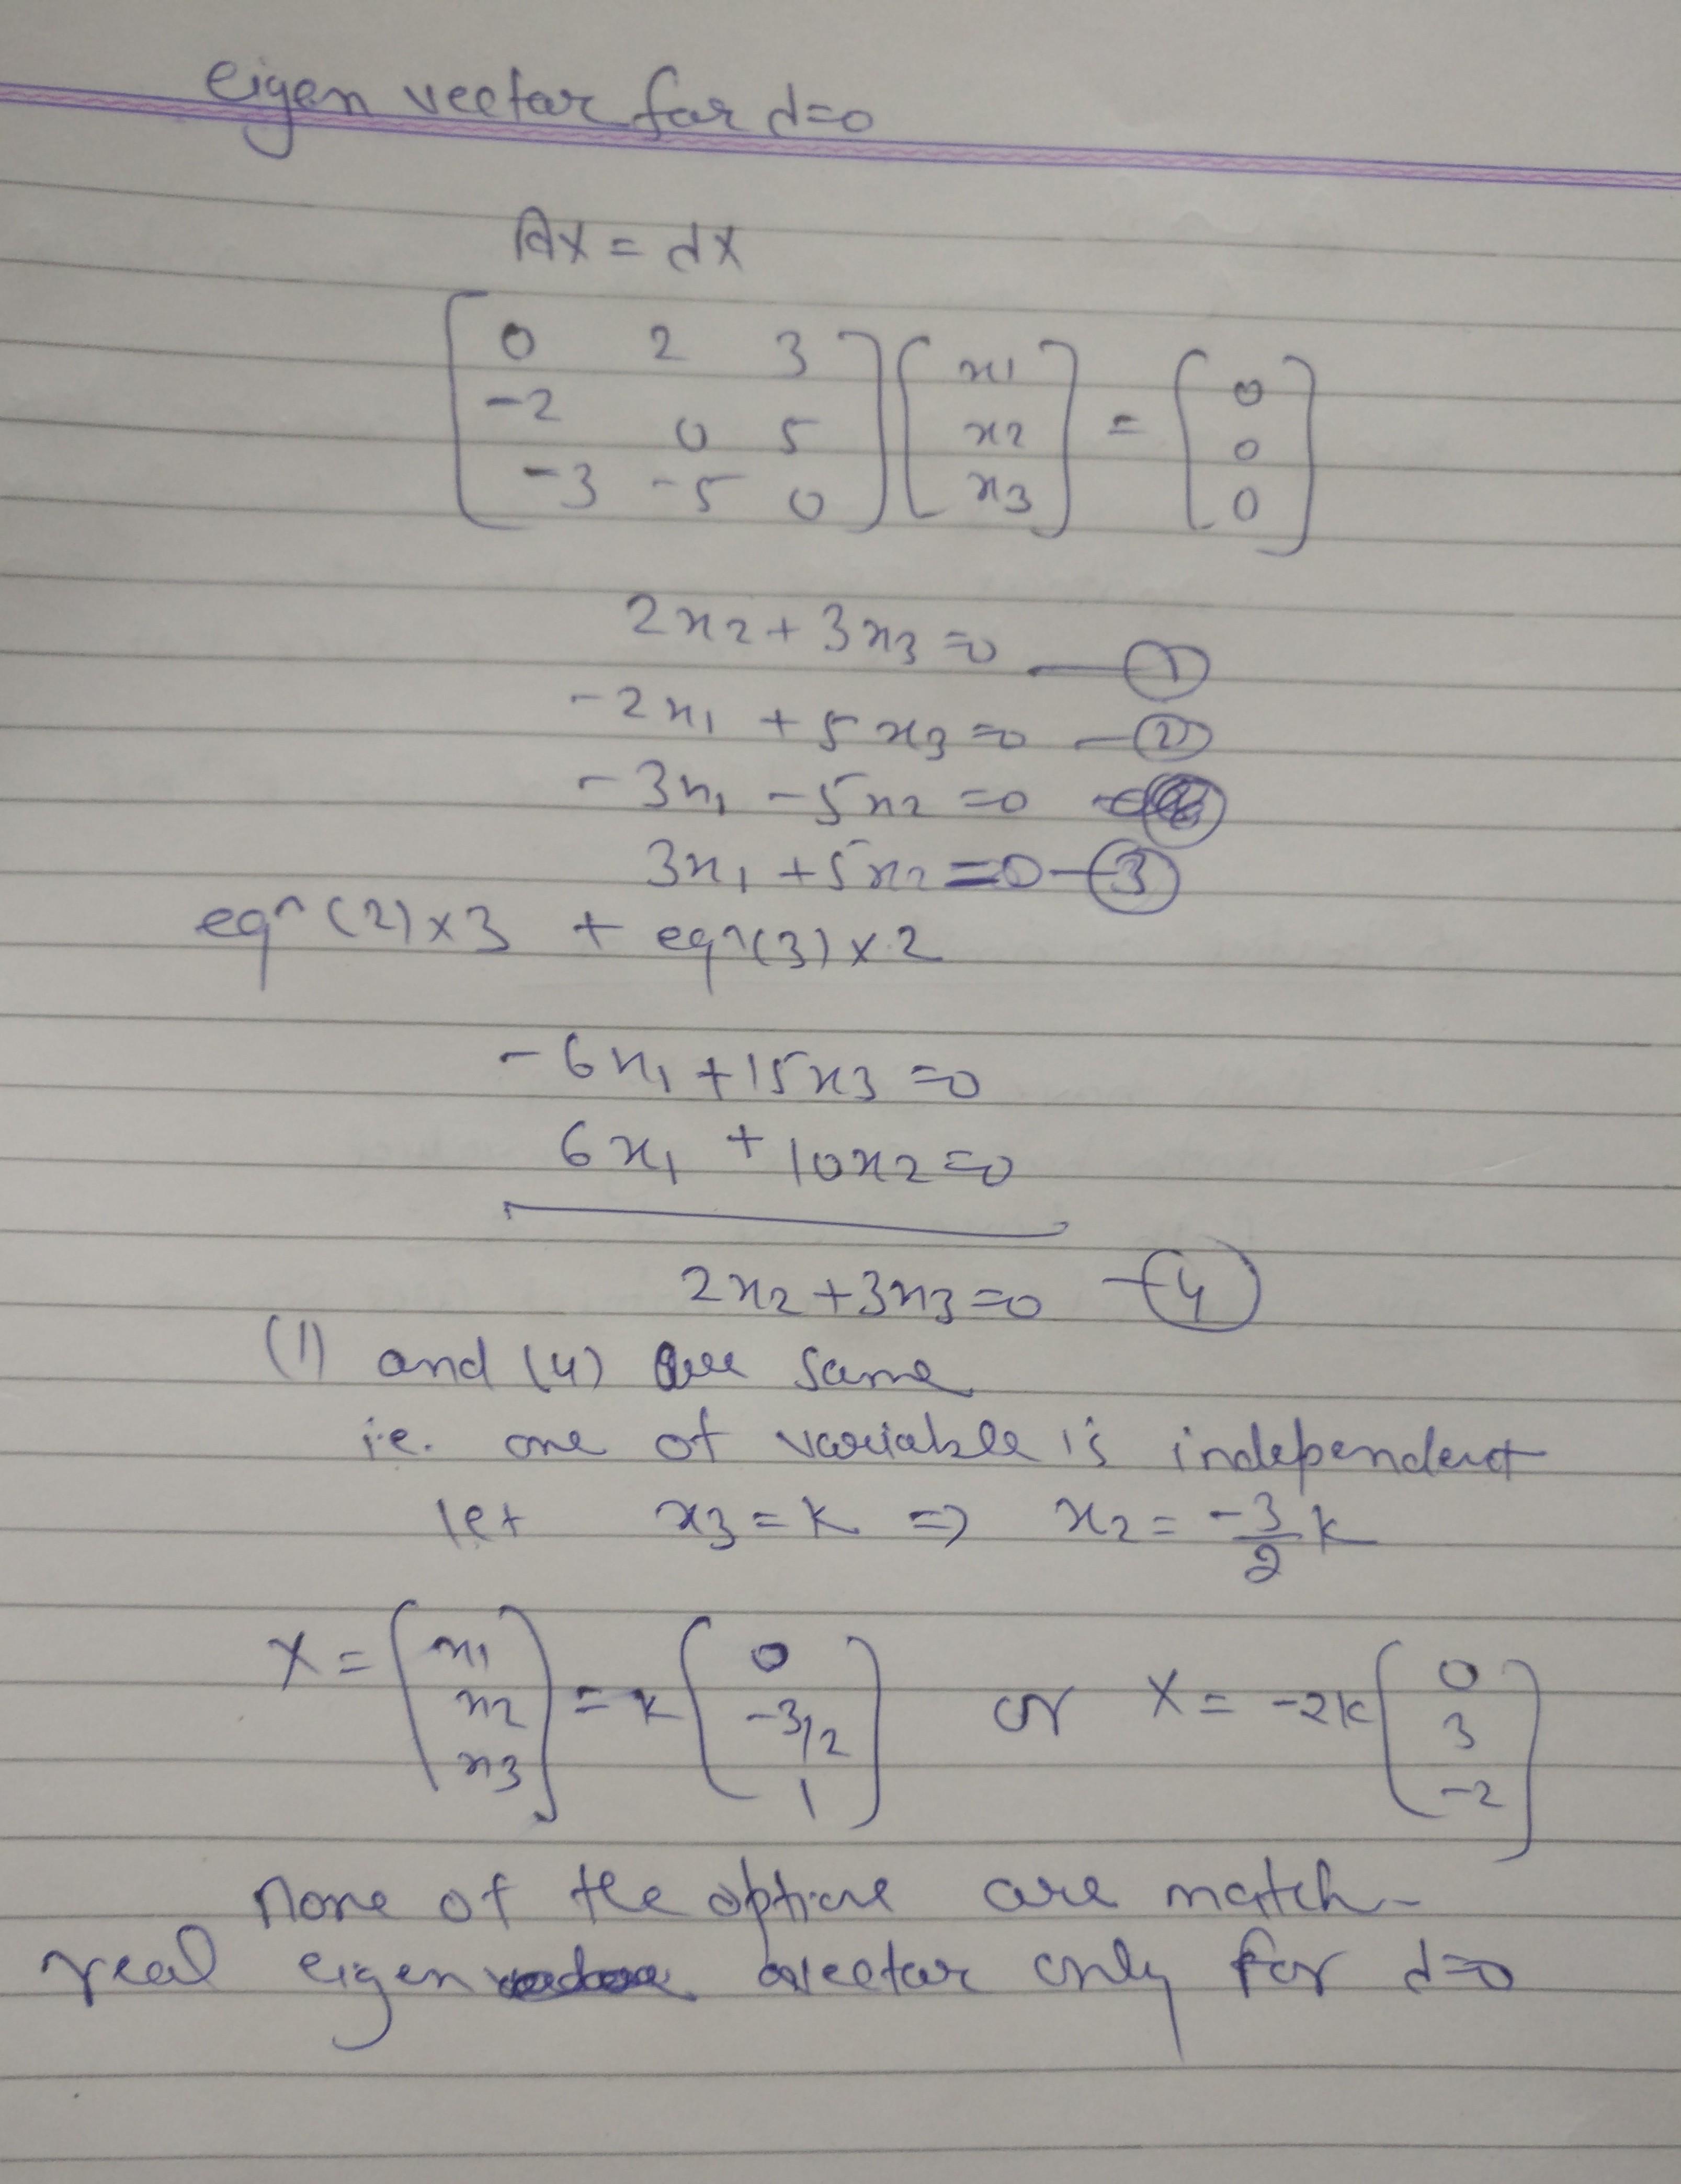 eigen vector for d=0
AX = dX
[0 2 3; -2 0 5; -3 -5 0] [x1; x2; x3] = [0; 0; 0]
2x2 + 3x3 = 0 — (1)
-2x1 + 5x3 = 0 — (2)
-3x1 - 5x2 = 0
3x1 + 5x2 = 0 — (3)
eqn (2) x 3 + eqn (3) x 2
-6x1 + 15x3 = 0
6x1 + 10x2 = 0
2x2 + 3x3 = 0 — (4)
(1) and (4) are same
i.e. one of variable is independent
let x3 = k => x2 = -3/2 k
X = (x1; x2; x3) = k (0; -3/2; 1) or X = -2k (0; 3; -2)
none of the option are match-
real eigen vector only for d=0